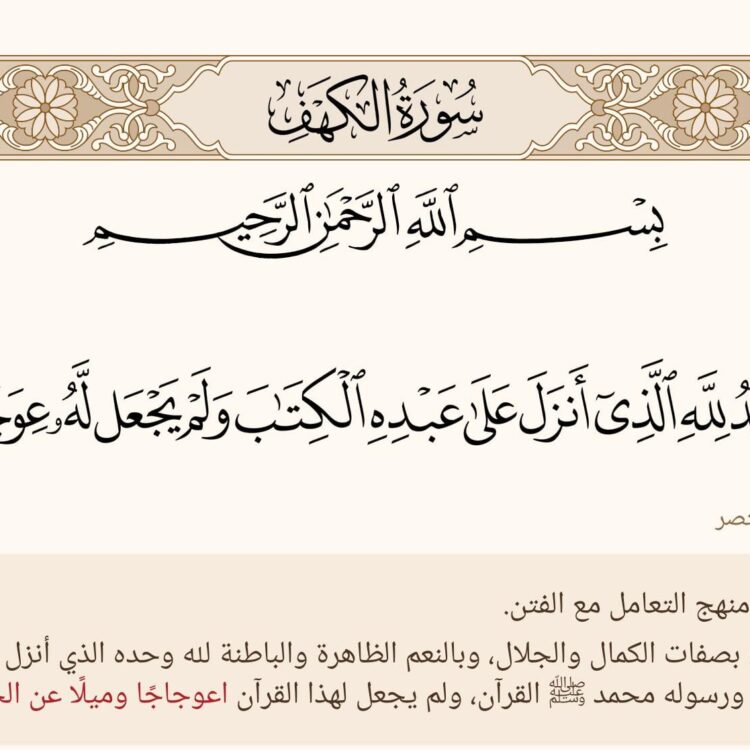 سُورَةُ الكَهْفِ
بِسْمِ ٱللَّهِ ٱلرَّحْمَٰنِ ٱلرَّحِيمِ
لِلَّهِ ٱلَّذِىٓ أَنزَلَ عَلَىٰ عَبْدِهِ ٱلْكِتَٰبَ وَلَمْ يَجْعَل لَّهُۥ
منهج التعامل مع الفتن.
بصفات الكمال والجلال، وبالنعم الظاهرة والباطنة لله وحده الذي أنزل
ورسوله محمد ﷺ القرآن، ولم يجعل لهذا القرآن اعوجاجًا وميلًا عن